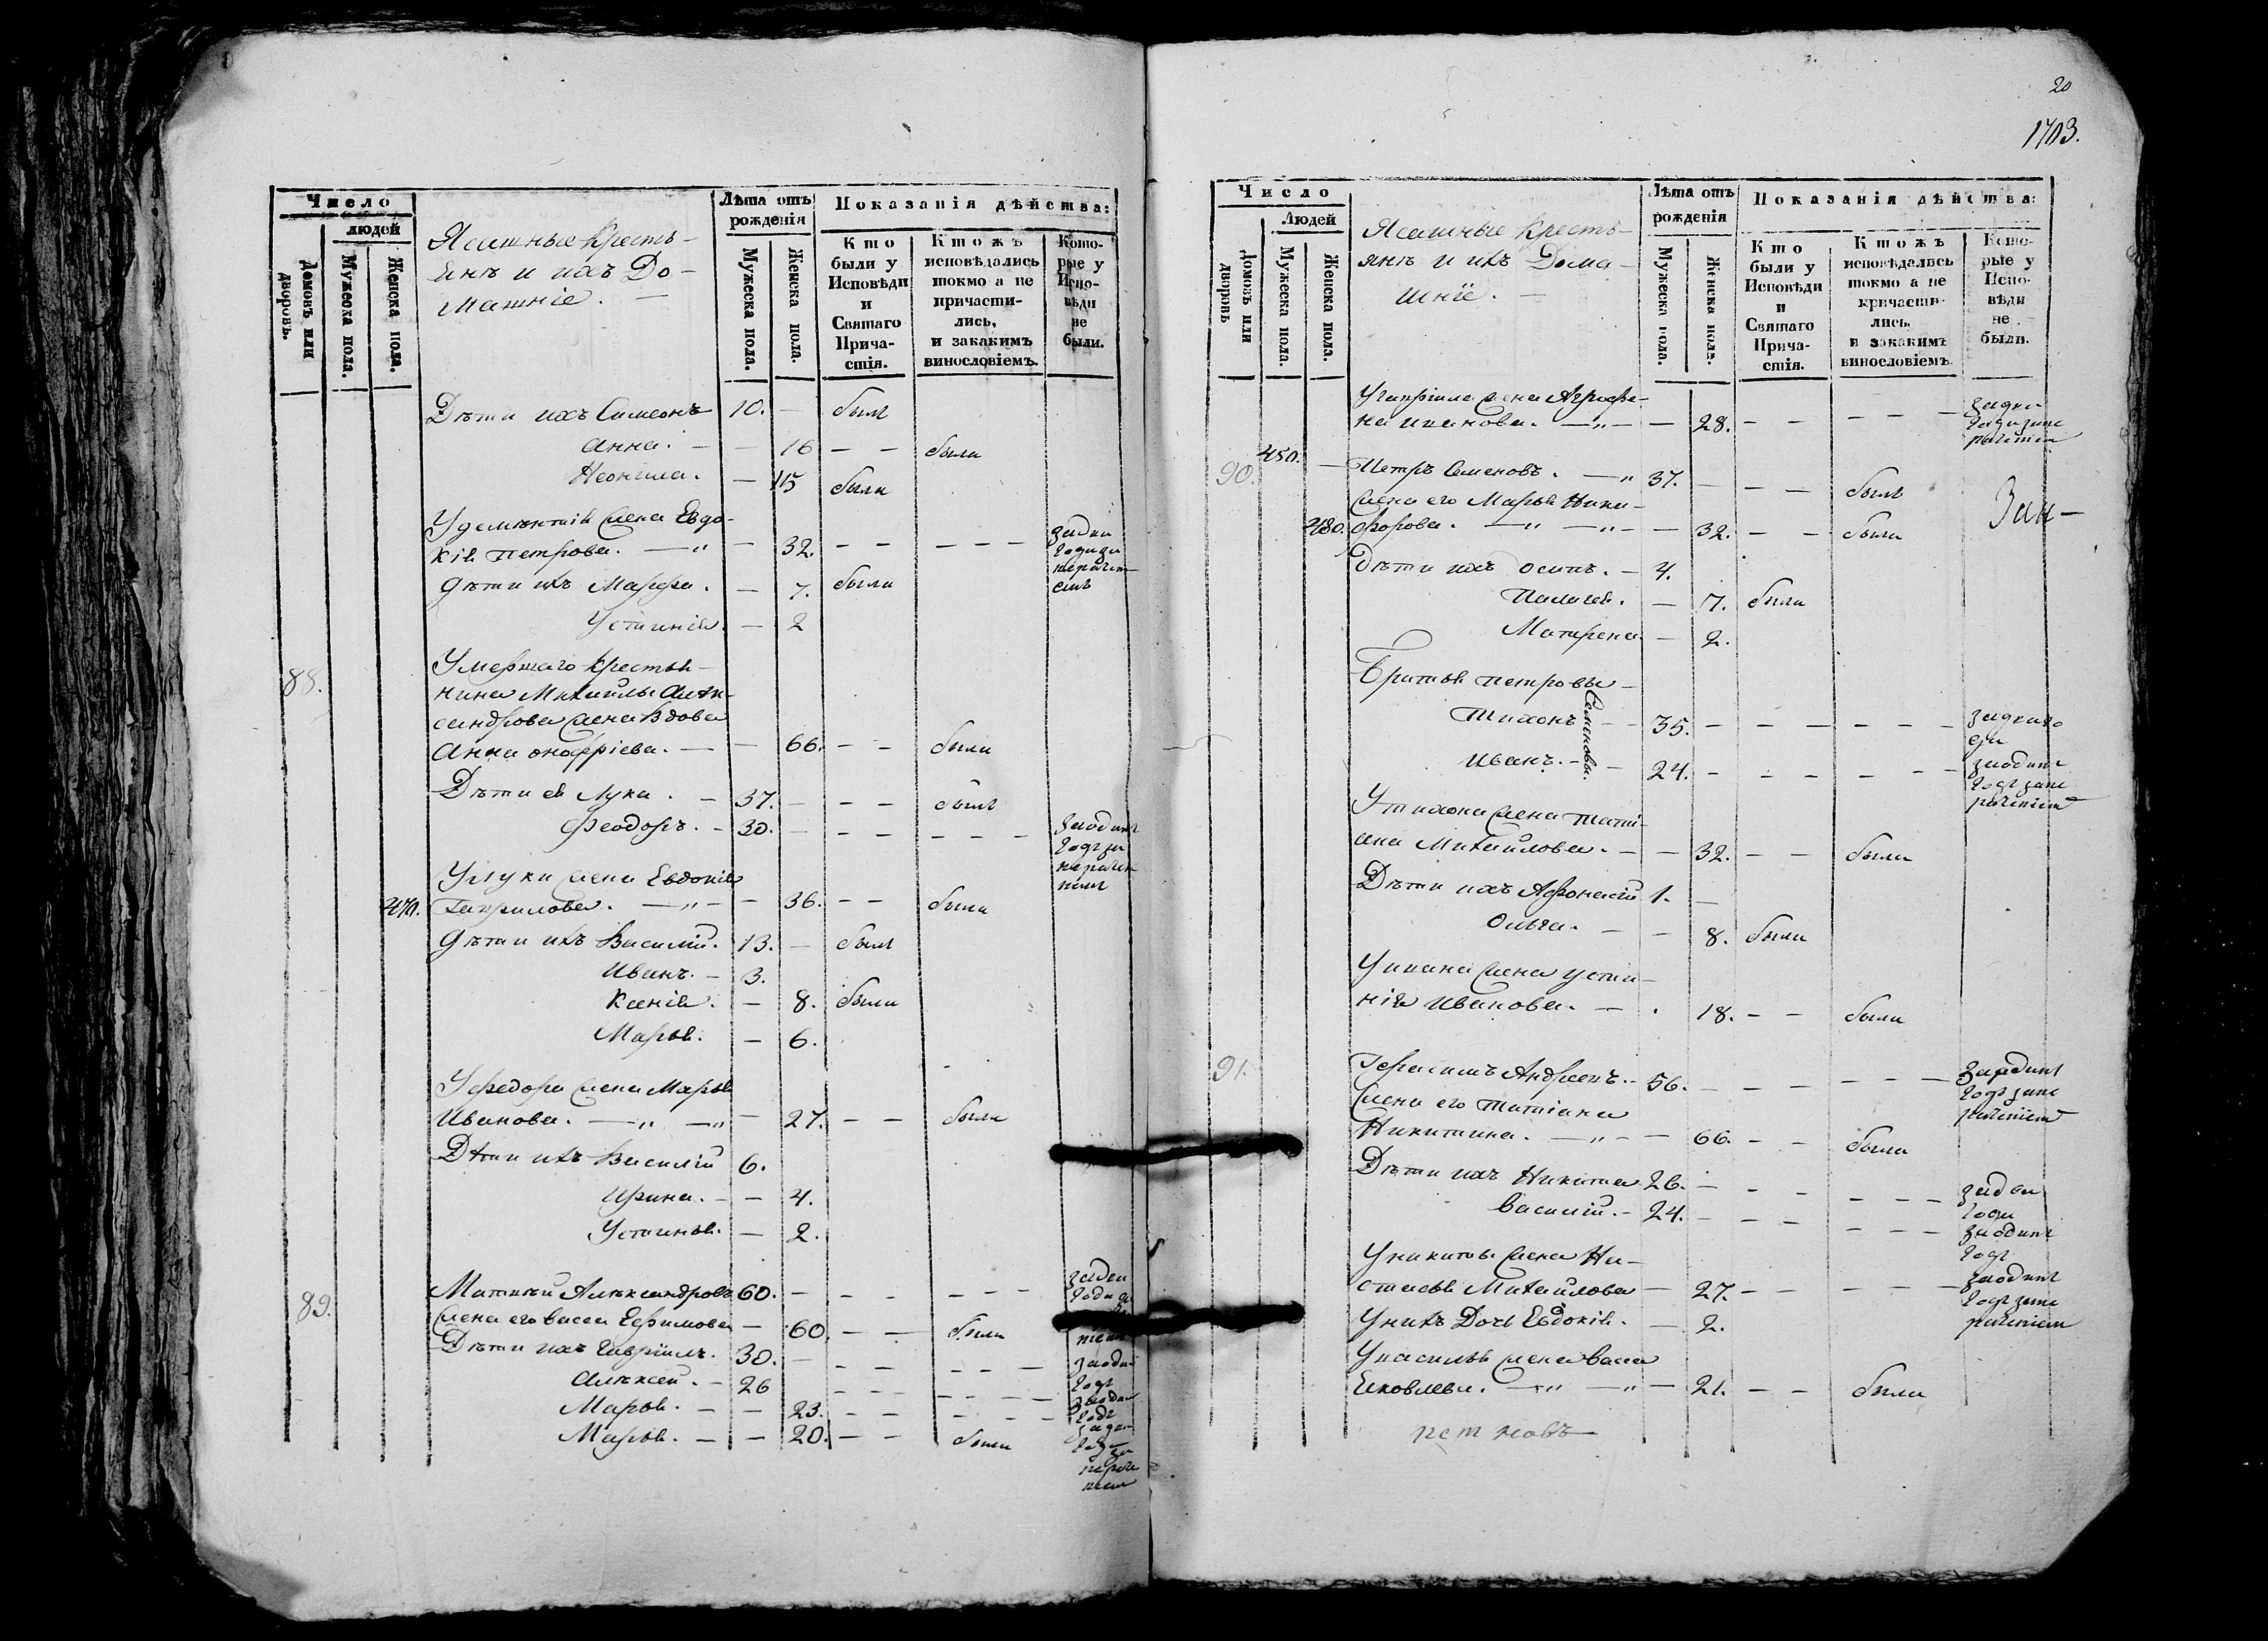 Число
людей
Домовъ или дворовъ.
Мужеска пола.
Женска пола.
Ясашные кресть-
янѣ и ихъ До-
машніе. —
Лѣта отъ рожденія
Мужеска пола.
Женска пола.
Показанія дѣйства:
Кто были у Исповѣди и Святаго Прича-стія.
Ктожъ исповѣдались токмо а не причасти-лись, и закакимъ винословіемъ.
Кото-рые у Испо-вѣди не были.
Дѣти ихъ Симеонъ 10. — былъ
Анна. — — 16 — — была
Неонила. — 15 была
У дементія жена Евдо-
кія петрова. — „ — 32. — — — — —
дѣти ихъ Марфа. — 7. была
Устинія. — 2
88. Умершаго крестья-
нина Михайлы Алек-
сандрова жена вдова
Анна онофріева. — — 66. — — была
Дѣти ея Лука. — 37. — — — былъ
Феодоръ. — 30. — — — — — — заодинъ
годъ за
У луки жена Евдокія
470. Гаврилова. — „ — — 36. — — была
дѣти ихъ Василій. 13. — былъ
Иванъ. — 3.
Ксенія. — 8. была
Марья. — 6.
У федора жена Марья
Иванова. — „ — „ — 27. — — была
Дѣти ихъ Василій 6.
Ирина. — — 4.
Устинья. — 2.
89. Матвѣй Александровъ 60. — — — — — —
жена его васса Ефимова — 60. — — была
Дѣти ихъ Гавріилъ. 30. — — — — — —
Алексей. — 26 — — — — — — —
Марья. — — 23. — — — — —
Марья. — — 20. — — была
20
1703.
Число
Людей
Домовъ или дворовъ
Мужеска пола.
Женска пола.
Ясашные кресть-
янѣ и ихъ Дома-
шніе. —
Лѣта отъ рожденія
Мужеска пола.
Женска пола.
Показанія дѣйства:
Кто были у Исповѣди и Святаго Прича-стія.
Ктожъ исповѣдались токмо а не причасти-лись, и закакимъ винословіемъ.
Кото-рые у Испо-вѣди не были.
У гавріила жена Агрофе-
на иванова. — „ — — 28. — — — — —
90. 450. — Петръ Семеновъ. — „ 37. — — — былъ
жена его Марья Ники-
480. форова. — „ — „ — — 32. — — была
дѣти ихъ осипъ. — 4.
Пелагея. — 7. была
Матрена. — 2.
Братья петровы —
Семеновы.
Тихонъ — — 35. — — — — — —
Иванъ. — — 24. — — — — — — заодинъ
годъ зане
раченіем
У тихона жена тати-
ана Михайлова. — — 32. — — была
Дѣти ихъ Афонасій 1. —
Ольга. — — 8. была
У ивана жена усти-
нія Иванова. — . 18. — — была
91. Герасимъ Андреевъ. — 56. — — — — — — заодинъ
годъ зане
раченіем
жена его татіана
Никитина. — „ — — 66. — — была
Дѣти ихъ Никита 26. — — — — — — за два
года
Василій. — 24. — — — — — — заодинъ
годъ
У никиты жена На-
стасья Михайлова — 27. — — — — — заодинъ
годъ зане
раченіем
У нихъ Дочь Евдокія. — 2.
У василья жена васса
Яковлева. — „ — „ — 21. — — была